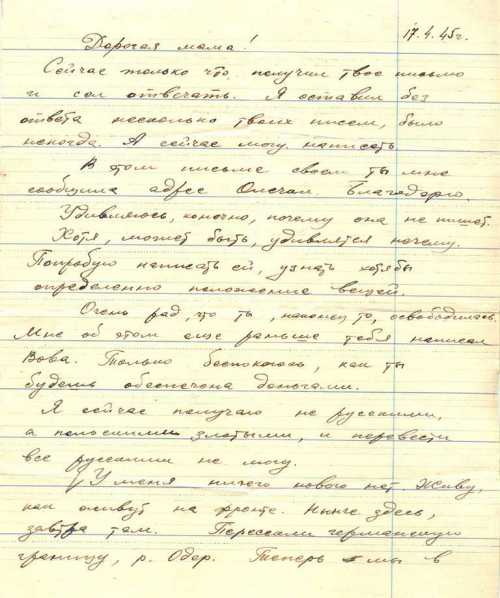 17.4.45г.
Дорогая мама!
Сейчас только что получил твое письмо
и сел отвечать. Я оставил без
ответа несколько твоих писем, было
некогда. А сейчас могу написать
В том письме своем ты мне
сообщила адрес Благодарю.
Удивляюсь, конечно, почему она не пишет.
Хотя, может быть, удивлятся нечему.
Попробую написать ей, узнать хотябы
определенно положение вещей.
Очень рад, что ты, наконец то, освободилась.
Мне об этом еще раньше тебя написал
Вова. Только беспокоюсь, как ты
будешь обеспечена деньгами.
Я сейчас получаю не русскими,
а польскими злотыми, и перевести
все русскими не могу.
У меня ничего нового нет. Живу,
как живут на фронте. Нынче здесь,
завтра там. Пересекли германскую
границу, р. Одер. Теперь мы в